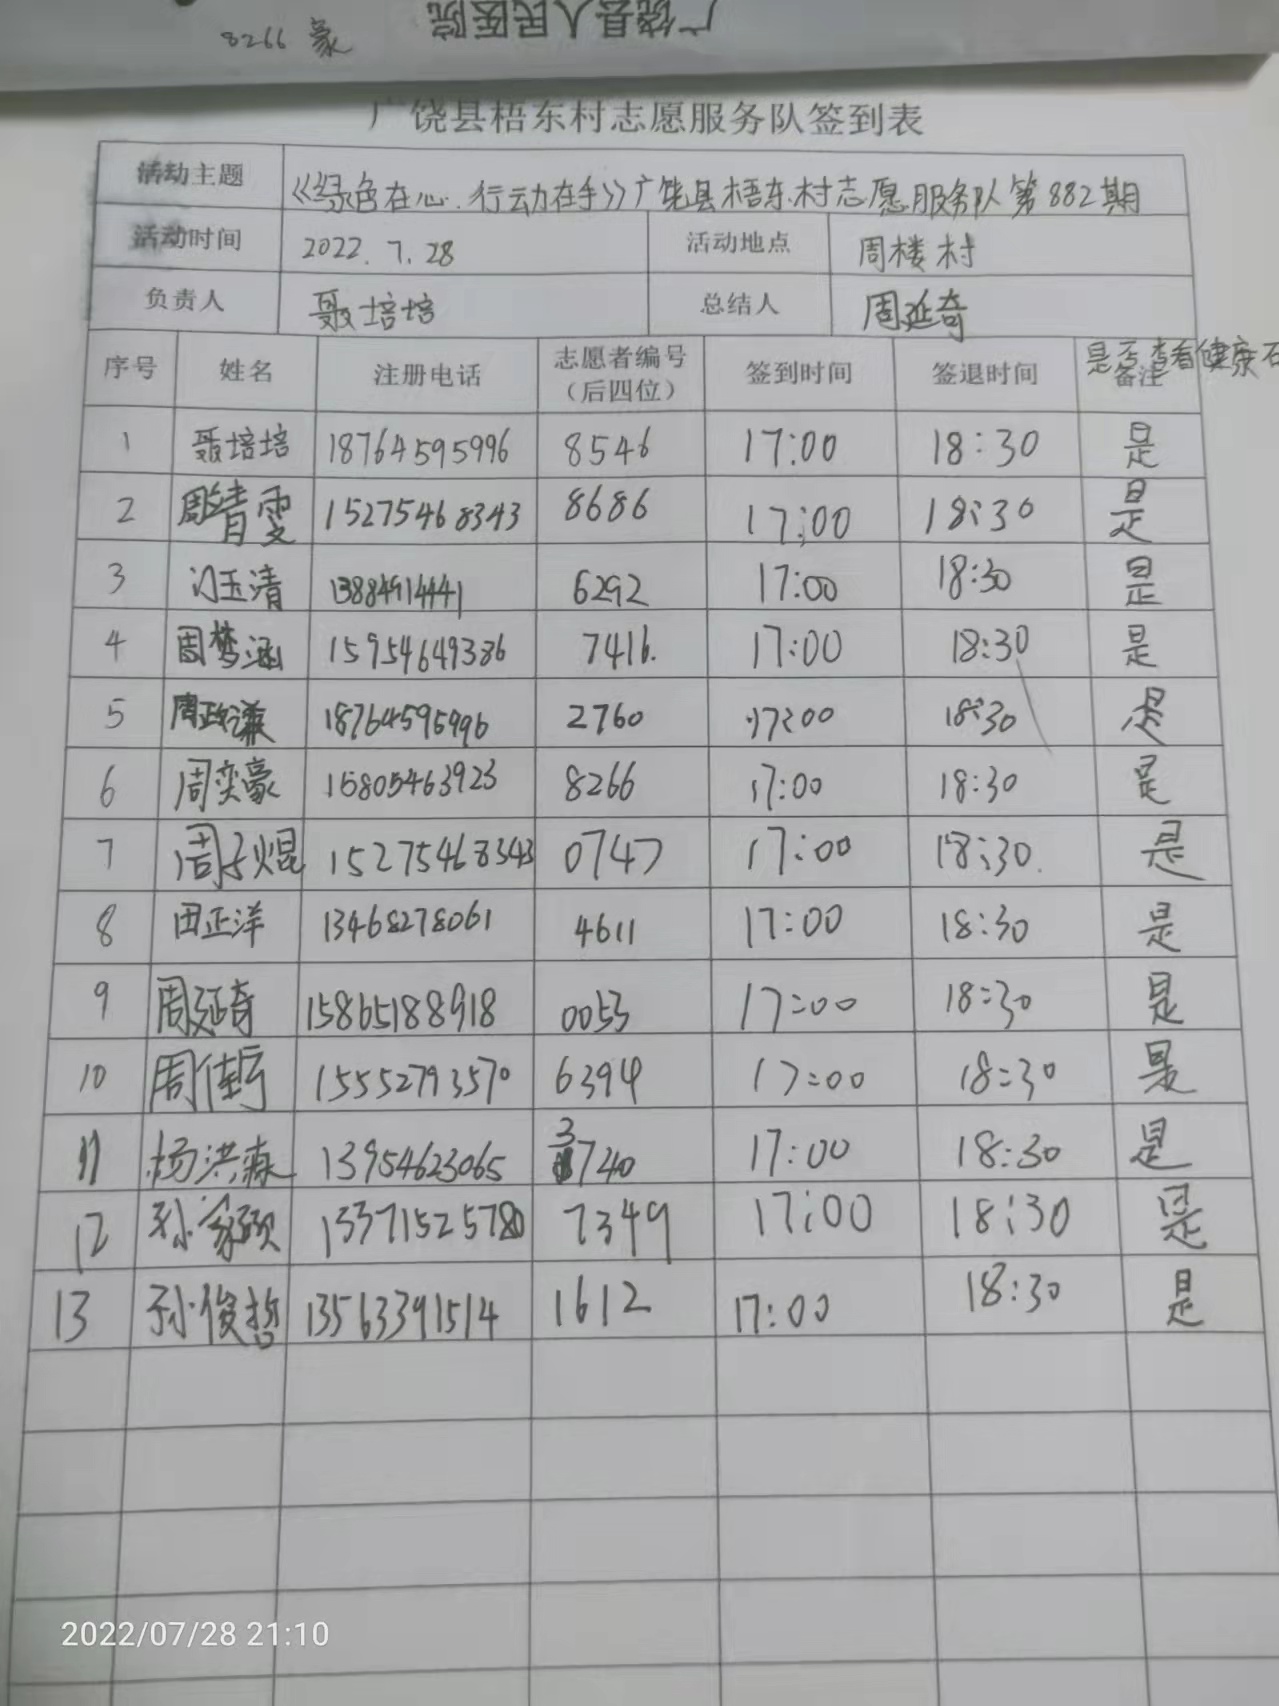 广饶县人民医院
8266 豪
广饶县梧东村志愿服务队签到表
活动主题 《绿色在心.行动在手》广饶县梧东村志愿服务队第882期
活动时间 2022.7.28 活动地点 周楼村
负责人 聂培培 总结人 周延奇
序号 姓名 注册电话 志愿者编号（后四位） 签到时间 签退时间 备注 是否查看健康
1 聂培培 18764595996 8546 17:00 18:30 是
2 周靖雯 15275468343 8686 17:00 18:30 是
3 闫玉清 13884914441 6292 17:00 18:30 是
4 周梦涵 15954649386 7416. 17:00 18:30 是
5 周政谦 18764595996 2760 17:00 18:30 是
6 周奕豪 15805463923 8266 17:00 18:30 是
7 周子焜 15275468343 0747 17:00 18:30. 是
8 田正洋 13468278061 4611 17:00 18:30 是
9 周延奇 15865188918 0053 17:00 18:30 是
10 周佳 15552793570 6394 17:00 18:30 是
11 杨洪森 13954623065 3740 17:00 18:30 是
12 孙家硕 13371525780 7349 17:00 18:30 是
13 孙俊哲 13563391514 1612 17:00 18:30 是
2022/07/28 21:10